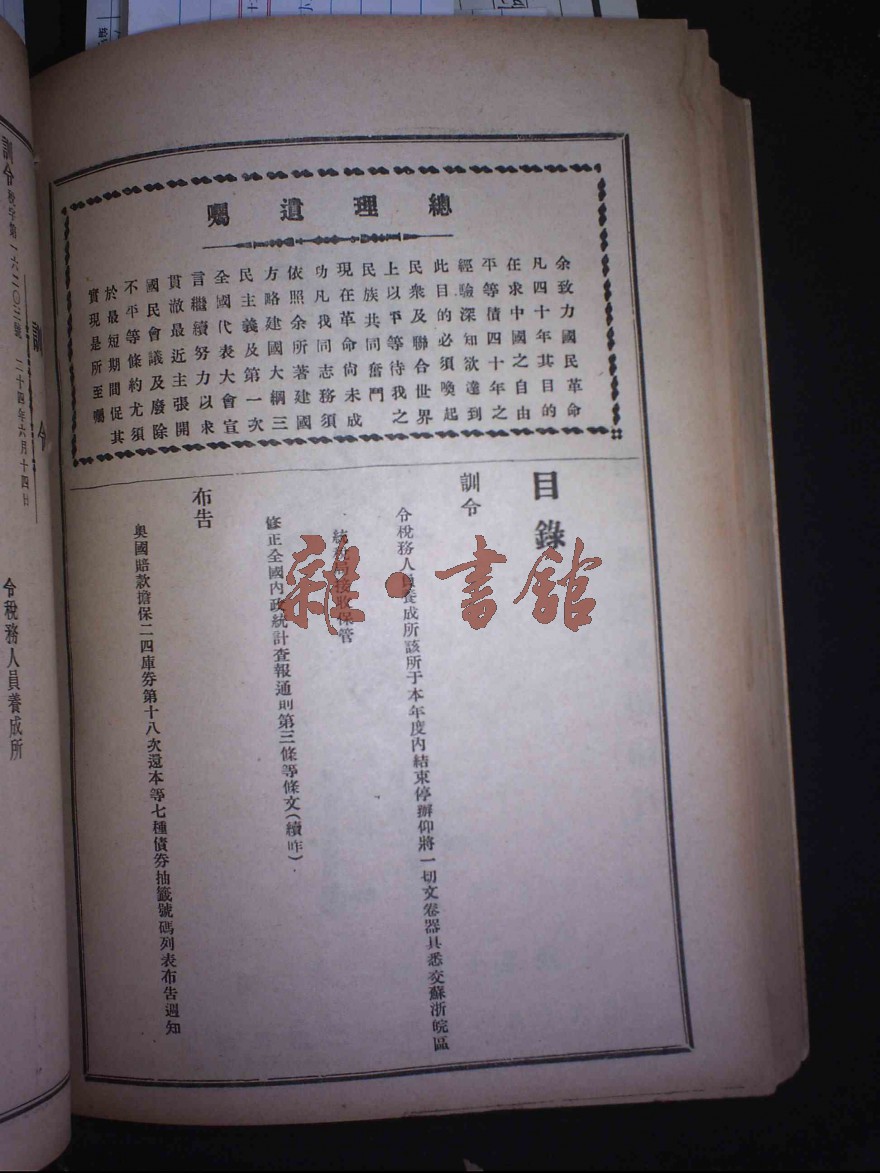 總理遺囑
余致力國民革命
凡四十年其目的
在求中國之自由
平等積四十年之
經驗深知欲達到
此目的必須喚起
民衆及聯合世界
上以平等待我之
民族共同奮鬥
現在革命尚未成
功凡我同志務須
依照余所著建國
方略建國大綱三
民主義及第一次
全國代表大會宣
言繼續努力以求
貫澈最近主張開
國民會議及廢除
不平等條約尤須
於最短期間促其
實現是所至囑
目錄
訓令
令稅務人員養成所該所于本年度內結束停辦仰將一切文卷器具悉交蘇浙皖區
統稅局接收保管
修正全國內政統計查報通則第三條等條文(續昨)
布告
奧國賠款擔保二四庫券第十八次還本等七種債券抽籤號碼列表布告週知
雜·書館
訓令
訓令 稅字第一六二〇三號 二十四年六月十四日
令稅務人員養成所